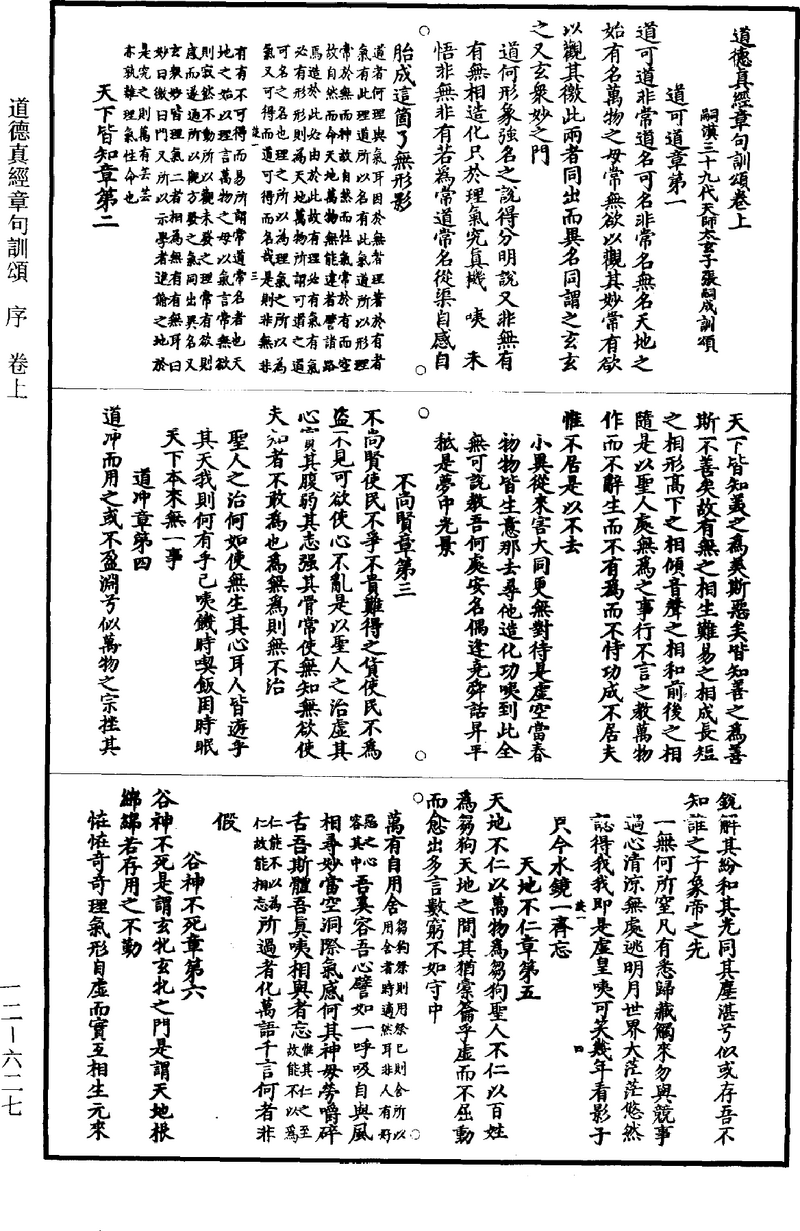 道德真經章句訓頌卷上
嗣漢三十九代天師太玄子張嗣成訓頌
道可道章第一
道可道非常道名可名非常名無名天地之
始有名萬物之母常無欲以觀其妙常有欲
以觀其徼此兩者同出而異名同謂之玄玄
之又玄衆妙之門
道何形象強名之說得分明說又非無有
有無相造化只於理氣究真機 咦 未
悟非無非有若為常道常名從渠自感自
胎成這箇了無形影
道者何理與氣耳因於無者理著於有者
氣有此理道所以名有此氣道所以形理
常於無而神故自然而性氣常於有而空
故自然而命天地萬物無能違者譬諸路
焉造於此必由於此故有理必有氣有氣
必有形形則為天地萬物所謂可道之道
可名之名也理之所以為理氣之所以為
氣又可得而道可得而名哉是則非無非
有有不可得而易所謂常道常名者也天
地之始以理言萬物之母以氣言常無欲
則寂然不動所以觀未發之理常有欲則
感而遂通所以觀方發之氣同出異名又
玄衆妙皆理氣二者相為無有有無耳曰
妙曰徼曰門又所以示學者進諭之地於
是究之則萬有芸芸
本孰離理氣性命也
天下皆知章第二
天下皆知美之為美斯惡矣皆知善之為善
斯不善矣故有無之相生難易之相成長短
之相形高下之相傾音聲之相和前後之相
隨是以聖人處無為之事行不言之教萬物
作而不辭生而不有為而不恃功成不居夫
惟不居是以不去
小異從來害大同更無對待是虛空當春
物物皆生意那去尋他造化功咦到此全
無可說教吾何處安名偶逢堯舜話昇平
秪是夢中光景
不尚賢章第三
不尚賢使民不爭不貴難得之貨使民不為
盜不見可欲使心不亂是以聖人之治虛其
心實其腹弱其志强其骨常使無知無欲使
夫知者不敢為也為無為則無不治
聖人之治何如使無生其心耳人皆遊乎
其天我則何有乎己咦饑時喫飯困時眠
天下本來無一事
道冲章第四
道冲而用之或不盈淵兮似萬物之宗挫其
銳解其紛和其光同其塵湛兮似或存吾不
知誰之子象帝之先
一無何所窒凡有悉歸藏觸來勿與競事
過心清涼無處逃明月世界大茫茫悠然
認得我我即是虛皇咦可笑幾年看影子
只今水鏡一齊忘
天地不仁章第五
天地不仁以萬物為芻狗聖人不仁以百姓
為芻狗天地之間其猶槖籥乎虛而不屈動
而愈出多言數窮不如守中
萬有自用舍芻狗祭則用祭已則舍所以
用舍者時適然耳非人有好
惡之心
容其中吾奚容吾心譬如一呼吸自與風
相尋妙當空洞際氣感何其神毋勞嚼碎
舌吾斯體吾真咦相與者忘惟其仁之至
故能不以為
仁能不以為
仁故能相忘所過者化萬語千言何者非
假
谷神不死章第六
谷神不死是謂玄牝玄牝之門是謂天地根
綿綿若存用之不勤
恠恠奇奇理氣形自虛而實互相生元來
道德真經章句訓頌 序 卷上
一二—六二七